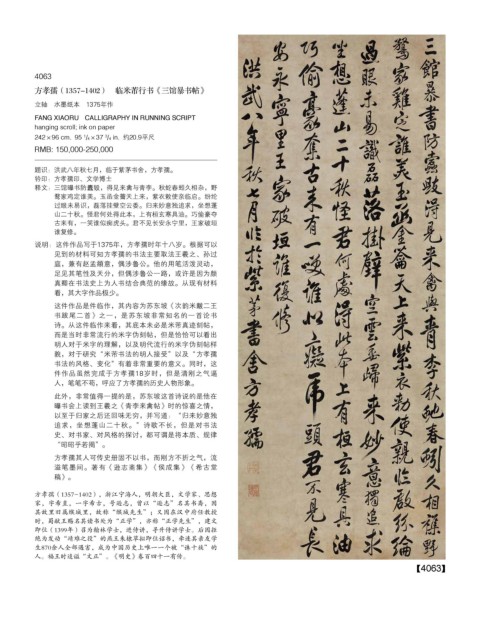 4063
方孝孺（1357–1402） 临米芾行书《三馆暴书帖》
立轴 水墨纸本 1375年作
FANG XIAORU CALLIGRAPHY IN RUNNING SCRIPT
hanging scroll; ink on paper
242×96 cm. 95 ¼×37 ¾ in. 约20.9平尺
RMB: 150,000-250,000
题识：洪武八年秋七月，临于紫茅书舍，方孝孺。
钤印：方孝孺印、文学博士
释文：三馆曝书防蠹毁，得见来禽与青李。秋蛇春蚓久相杂，野
鹜家鸡定谁美。玉函金籥天上来，紫衣敕使亲临启。纷纶
过眼未易识，磊落挂壁空云委。归来妙意独追求，坐想蓬
山二十秋。怪君何处得此本，上有桓玄寒具油。巧偷豪夺
古来有，一笑谁似痴虎头。君不见长安永宁里，王家破垣
谁复修。
说明：这件作品写于1375年，方孝孺时年十八岁。根据可以
见到的材料可知方孝孺的书法主要取法王羲之、孙过
庭，兼有赵孟頫意，偶涉鲁公。他的用笔活泼灵动，
足见其笔性及天分，但偶涉鲁公一路，或许是因为颜
真卿在书法史上为人书结合典范的缘故。从现有材料
看，其大字作品极少。
这件作品是件临作，其内容为苏东坡《次韵米黻二王
书跋尾二首》之一，是苏东坡非常知名的一首论书
诗。从这件临作来看，其底本未必是米芾真迹刻帖，
而是当时非常流行的米字伪刻帖，但是恰恰可以看出
明人对于米字的理解，以及明代流行的米字伪刻帖样
貌，对于研究“米芾书法的明人接受”以及“方孝孺
书法的风格、变化”有着非常重要的意义。同时，这
件作品虽然完成于方孝孺18岁时，但是清刚之气逼
人，笔笔不苟，呼应了方孝孺的历史人物形象。
此外，非常值得一提的是，苏东坡这首诗说的是他在
曝书会上读到王羲之《青李来禽帖》时的惊喜之情，
以至于归家之后还回味无穷，并写道：“归来妙意独
追求，坐想蓬山二十秋。”诗歌不长，但是对书法
史、对书家、对风格的探讨，都可谓是将本质、规律
“昭昭乎若揭”。
方孝孺其人可传史册固不以书，而刚方不折之气，流
溢笔墨间。著有《逊志斋集》《侯成集》《希古堂
稿》。
方孝孺（1357-1402），浙江宁海人，明朝大臣、文学家、思想
家，字希直，一字希古，号逊志，曾以“逊志”名其书斋，因
其故里旧属缑城里，故称“缑城先生”；又因在汉中府任教授
时，蜀献王赐名其读书处为“正学”，亦称“正学先生”，建文
即位（1399年）召为翰林学士，进侍讲，寻升侍讲学士。后因拒
绝为发动“靖难之役”的燕王朱棣草拟即位诏书，牵连其亲友学
生870余人全部遇害，成为中国历史上唯一一个被“诛十族”的
人。福王时追谥“文正”。《明史》卷百四十一有传。
三館暴書防蠹毀得見來禽與青李秋虵春蚓久相襍野
鶩家雞定誰美玉函金籥天上来紫衣勅使親临啟紛綸
過眼未易識磊落掛壁空雲委歸来妙意獨追求
坐想蓬山二十秋怪君何處得此本上有桓玄寒具油
巧偷豪奪古来有一咲誰似癡虎頭君不見長
安永寧里王家破垣誰復修
洪武八年秋七月临於紫茅書舍方孝孺
【4063】